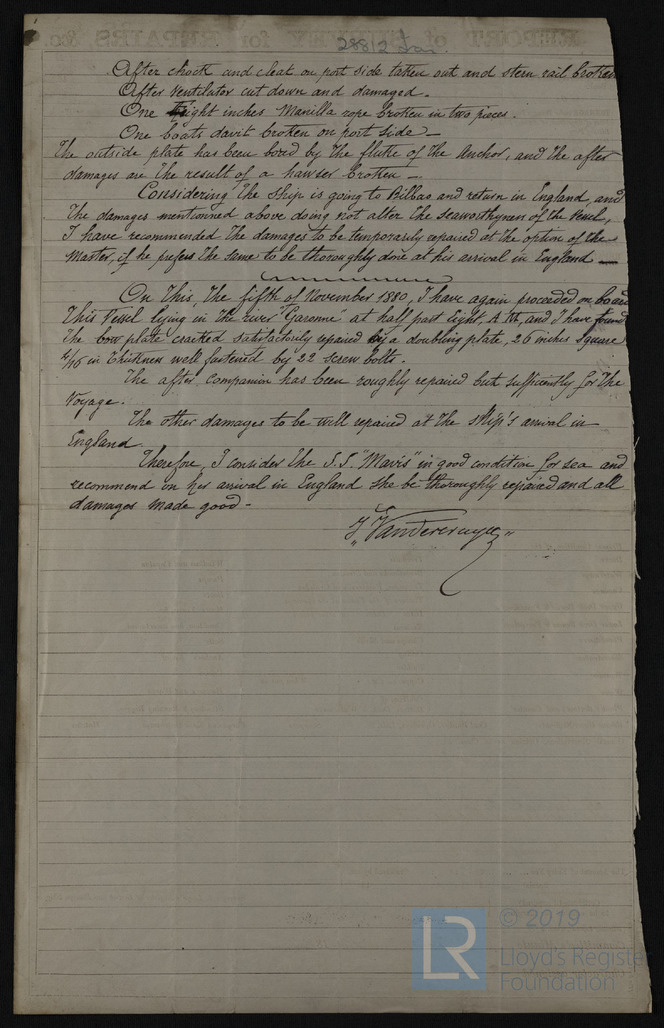 28812 Iron
After chock and cleat on port side taken out and stern rail broken
After Ventilator cut down and damaged.
One eight inches Manilla rope broken in two pieces.
One boats davit broken on port side —
The outside plate has been bored by the fluke of the Anchor, and the after
damages are the result of a hawser broken —
Considering the ship is going to Bilbao and return in England, and
the damages mentionned above doing not alter the seaworthyness of the Vessel,
I have recommended the damages to be temporarily repaired at the option of the
Master, if he prefers the same to be thoroughly done at his arrival in England —
On this, the fifth of November 1880, I have again proceeded on board
this Vessel lying in the river "Garonne" at half past Eight, A.M, and I have found
the bow plate cracked satisfactorily repaired by a doubling plate, 26 inches square
/16 in thickness well fastened by 22 screw bolts.
The after companion has been roughly repaired but sufficiently for the
Voyage.
The other damages to be well repaired at the ship's arrival in
England
Therefore, I consider the S.S. "Mavis" in good condition for sea and
recommend on her arrival in England she be thoroughly repaired and all
damages made good -
© 2019
LR
Lloyd's Register
Foundation